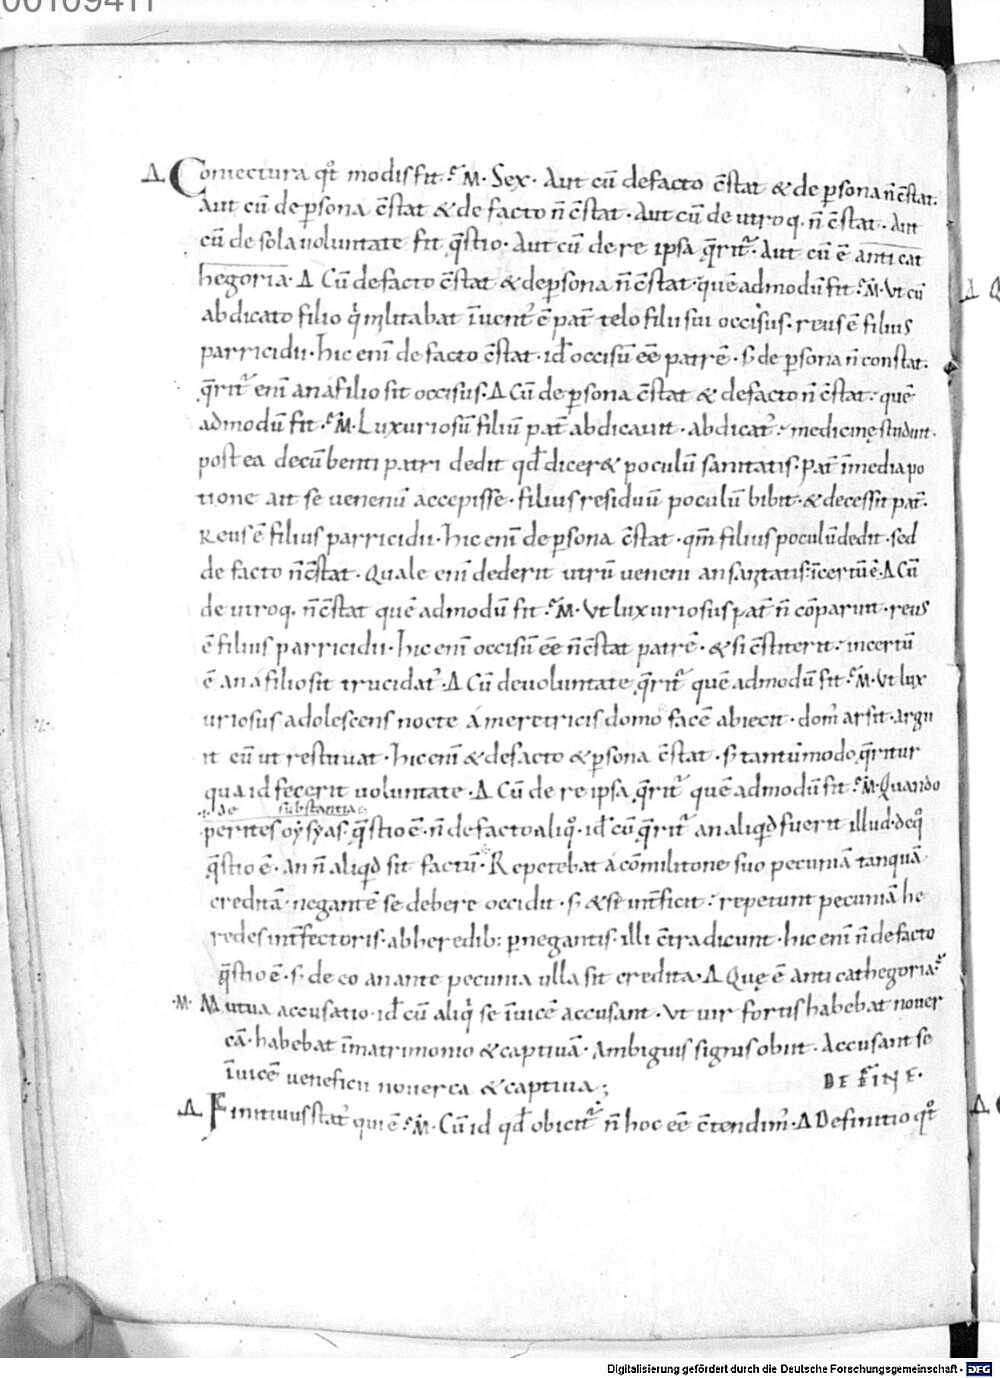 00109411
Δ Coniectura qt̊ modis fit · M · Sex · Aut cū de facto c̄stat & de p̱sona n̄ c̄stat ·
Aut cū de p̱sona c̄stat & de facto n̄ c̄stat · Aut cū de utroq. n̄ c̄stat · Aut
cū de sola uoluntate fit q̄stio · Aut cū de re ipsa q̄rit᷑ · Aut cū ē anticat
hegoria · Δ Cū de facto c̄stat & de p̱sona n̄ c̄stat · quē admodū fit · M · Ut cū
abdicato filio militabat īuent᷑ ē pat̄ telo filii sui occisus · reus ē filius
parricidii · hic enī de facto c̄stat · id̄ occisū ēē patrē · s̄ de p̱sona n̄ constat ·
q̄rit᷑ enī an a filio sit occisus · Δ Cū de p̱sona c̄stat & de facto n̄ c̄stat · quē
admodū fit · M · Luxuriosū filiū pat̄ abdicauit · abdicat᷑ medicinę studuit ·
postea decūbenti patri dedit qd̄ dicer& poculū sanitatis · pat̄ ī media po
tione ait se uenenū accepisse · filius residuū poculū bibit · & decessit pat̄ ·
Reus ē filius parricidii · hic enī de p̱sona c̄stat · qm̄ filius poculū dedit · sed
de facto n̄ c̄stat · Quale enī dederit utrū ueneni an sanitatis · īcertū ē · Δ Cū
de utroq. n̄ c̄stat quē admodū fit · M · Ut luxuriosus pat̄ n̄ cōparuit · reus
ē filius parricidii · hic enī occisū ēē n̄ c̄stat patrē · & si c̄stiterit · incertū
ē an a filio sit trucidat᷑ · Δ Cū de uoluntate q̄rit᷑ quē admodū fit · M · Ut lux
uriosus adolescens nocte á meretricis domo facē abiecit · dom᷑ arsit · argu
it cū ut restituat · hic enī & de facto & p̱sona c̄stat · s̄ tantūmodo q̄ritur
qua id fecerit uoluntate · Δ Cū de re ipsa q̄rit᷑ quē admodū fit · M · Quando
de substantia
perites oysyas q̄stio ē · n̄ de facto aliq̊ · id̄ cū q̄rit᷑ an aliqd̄ fuerit illud · de q̊
q̄stio ē · an n̄ aliqd̄ sit factū · Repetebat á cōmilitone suo pecuniā tanquā
creditā · negantē se debere occidit · s̄ & se int̄ficit · repetunt pecuniā he
redes int̄fectoris · ab heredib; p̱negantis · illi c̄tradicunt · hic enī n̄ de facto
q̄stio ē · s̄ de eo an ante pecunia ulla sit credita · Δ Quę ē anticathegoria ·
· M · Mutua accusatio · id̄ cū aliq̄ se īuicē accusant · Ut uir fortis habebat nouer
cā · habebat ī matrimonio & captiuā · Ambiguis signis obiit · Accusant se
īuicē ueneficii nouerca & captiua ;
DE FINE ·
Δ Finitiuus stat᷑ qui ē · M · Cū id qd̄ obicit᷑ n̄ hoc ēē c̄tendim᷑ · Δ Definitio qt̊
Digitalisierung gefördert durch die Deutsche Forschungsgemeinschaft - DFG